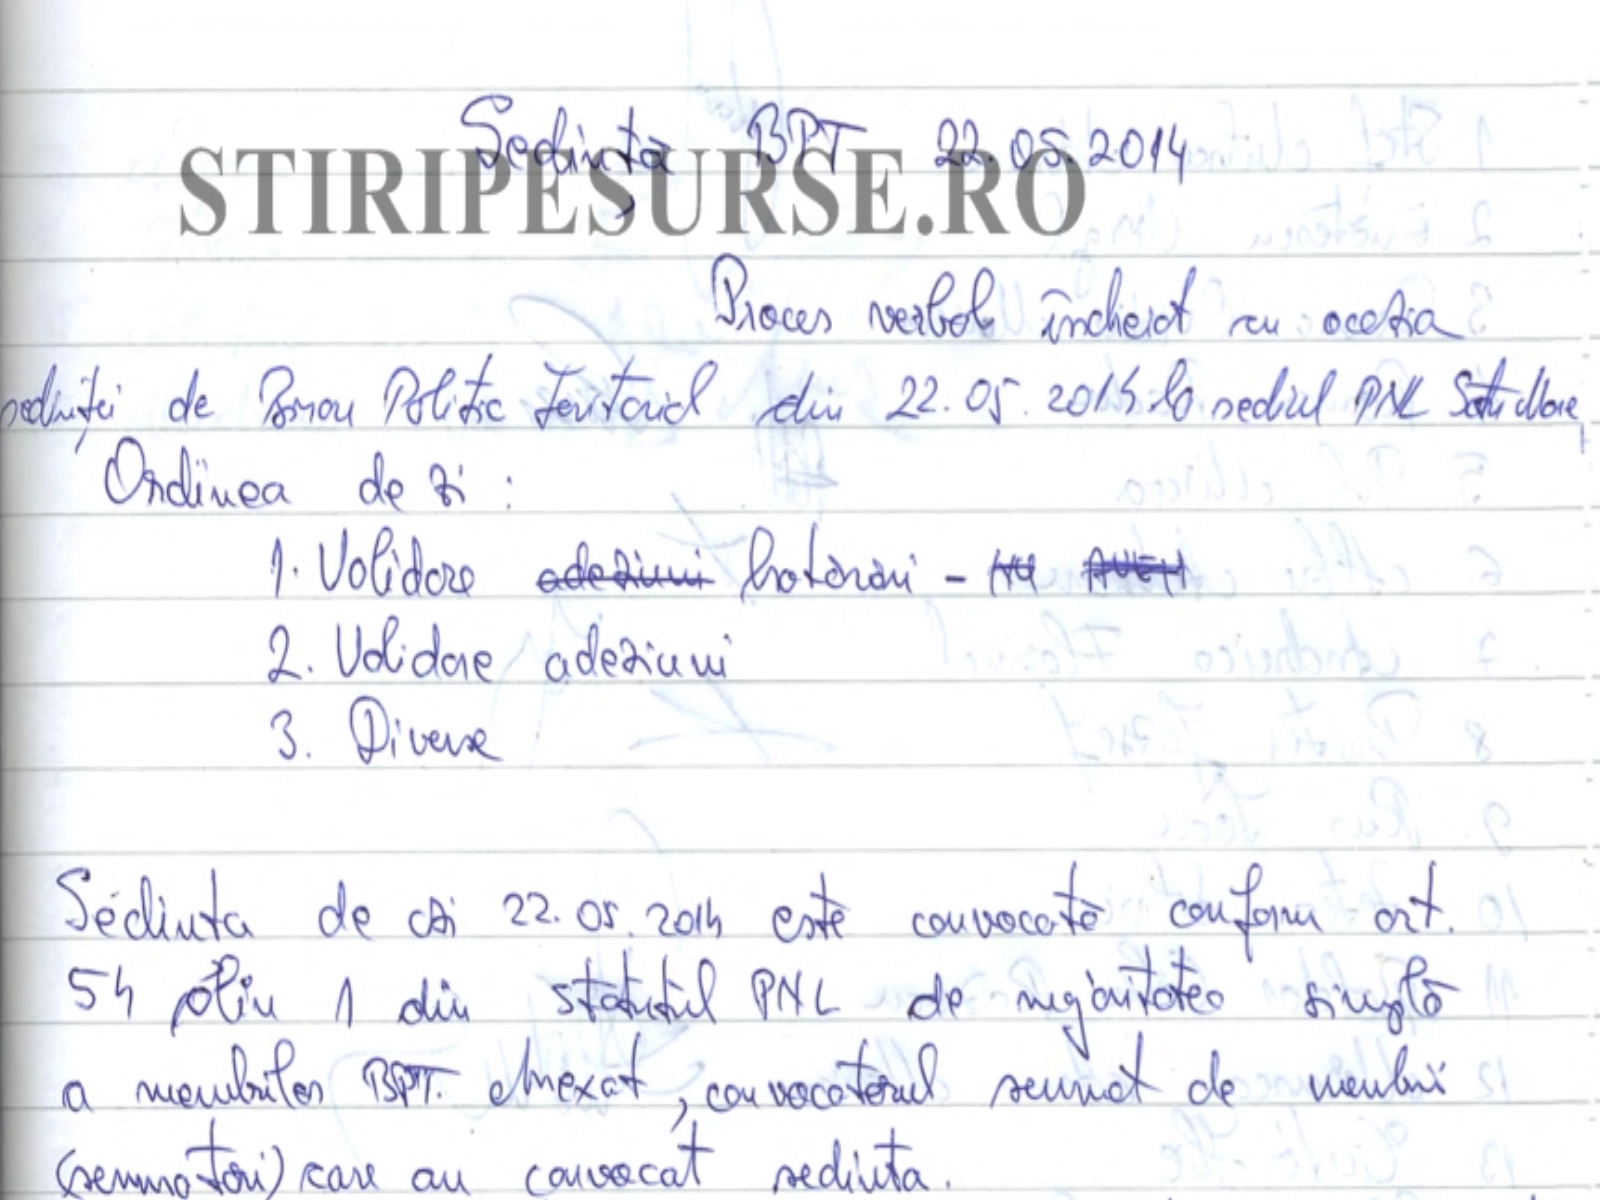 Sedință BPT 22.05.2014
STIRIPESURSE.RO
Proces verbal încheiat cu ocazia
sedinței de Birou Politic Teritorial din 22.05.2014 la sediul PNL Satu Mare,
Ordinea de zi :
1. Validare adeziuni hotarari -
2. Validare adeziuni
3. Diverse
Sedinta de azi 22.05.2014 este convocată conform art.
54 alin 1 din statutul PNL de majoritatea simplă
a membrilor BPT. Anexat, convocatorul semnat de membrii
(semnatari) care au convocat sedinta.